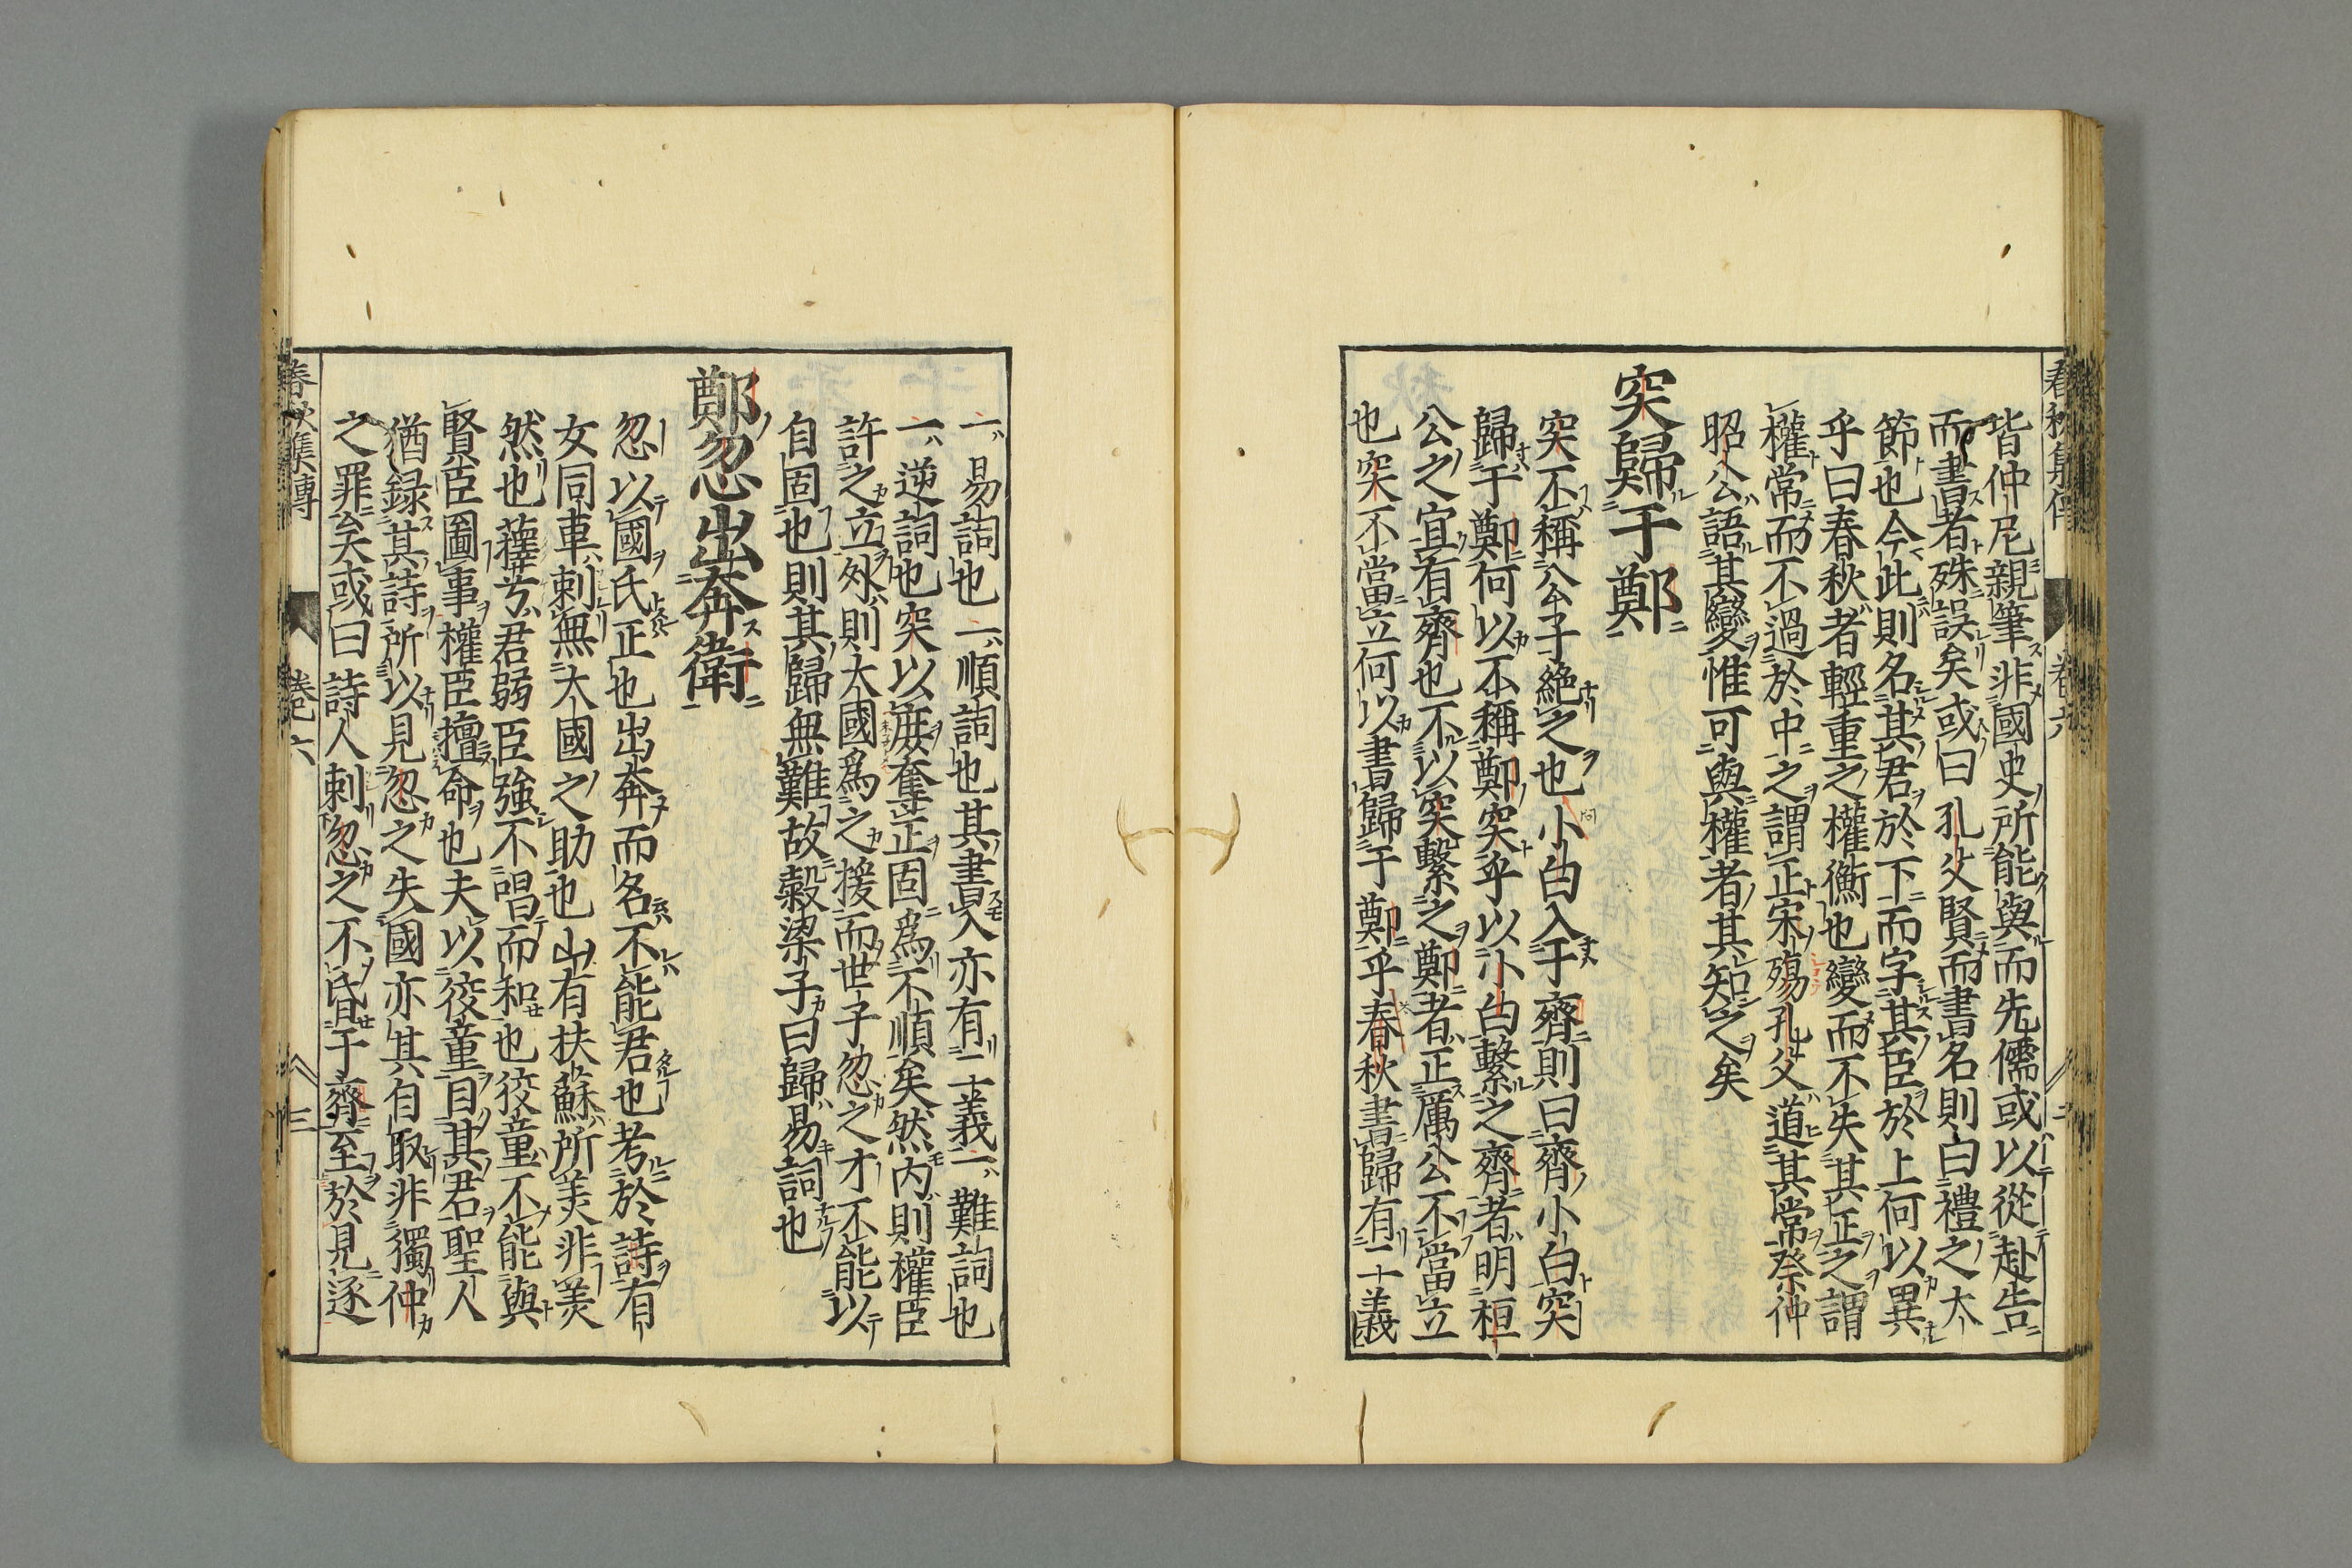 皆仲尼親筆非國史所能與而先儒或以從赴告
而書者殊誤矣或曰孔父賢而書名則曰禮之大
節也今此則名其君於下而字其臣於上何以異
乎曰春秋者輕重之權衡也變而不失其正之謂
權常而不過於中之謂正宋殤孔父道其常祭仲
昭公語其變惟可與權者其知之矣
突歸于鄭
突不稱公子絕之也小白入于齊則曰齊小白突
歸于鄭何以不稱鄭突乎以小白繫之齊者明桓
公之宜有齊也不以突繫之鄭者正厲公不當立
也突不當立何以書歸于鄭乎春秋書歸有二義
一易詞也一順詞也其書入亦有二義一難詞也
一逆詞也突以庶奪正固爲不順矣然內則權臣
許之立外則大國爲之援而世子忽之才不能以
自固也則其歸無難故穀梁子曰歸易詞也
鄭忽出奔衛
忽以國氏正也出奔而名不能君也考於詩有
女同車刺無大國之助也山有扶蘇所美非美
然也蘀兮君弱臣強不唱而和也狡童不能與
賢臣圖事權臣擅命也夫以狡童目其君聖人
猶録其詩所以見忽之失國亦其自取非獨仲
之罪矣或曰詩人刺忽之不昏于齊至於見逐
春秋集傳
卷六
二
春秋集傳
卷六
三